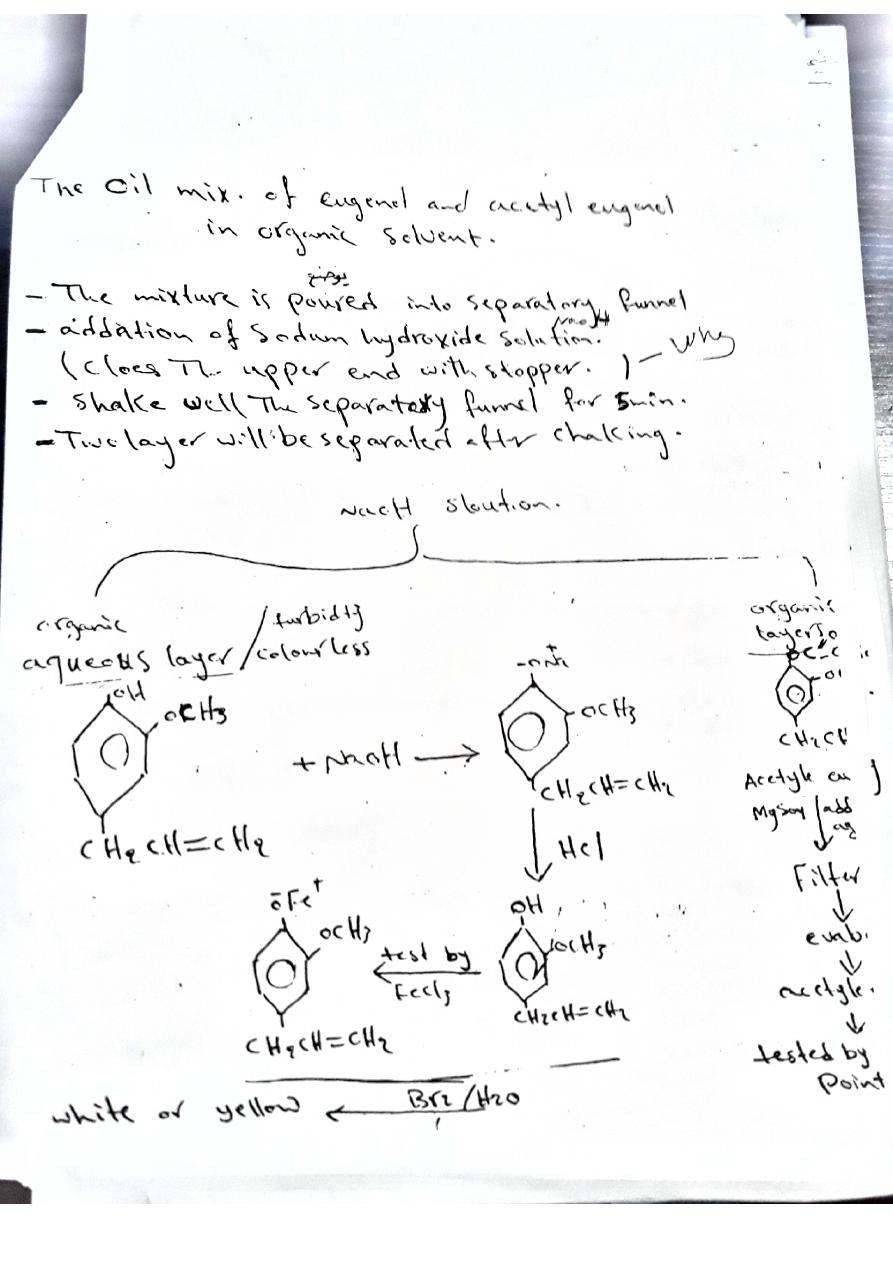 The Oil mix. of eugenol and acetyl eugenol
in organic solvent.
- The mixture is poured into separatory funnel
- addation of Sodum hydroxide solution.
NaOH
(cloes The upper end with stopper. ) - why
- shake well The separatory funnel for 5min.
- Two layer will be separated after chaking.
NaOH sloution.
organic
aqueous layer / turbidty
/ colourless
OH
OCH3
CH2CH=CH2
+ NaOH →
-ONa+
OCH3
CH2CH=CH2
HCl
OH
OCH3
CH2CH=CH2
test by
FeCl3
ōFe+
OCH3
CH2CH=CH2
Br2/H2O
white or yellow
organic
layer
CH2CH
Acetyle eu
MgSO4 / add
Filter
evab.
acetyle.
tested by
Point